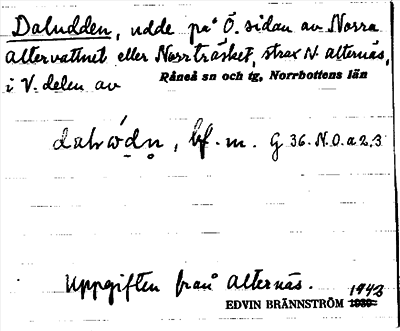 Daludden, udde på Ö. sidan av Norra
Altervattnet eller Norrträsket, strax N. Alternäs,
i V. delen av Råneå sn och tg, Norrbottens län
bf. m. G 36. N.O. a 2. 3
Uppgiften från Alternäs.
EDVIN BRÄNNSTRÖM 1939 1943